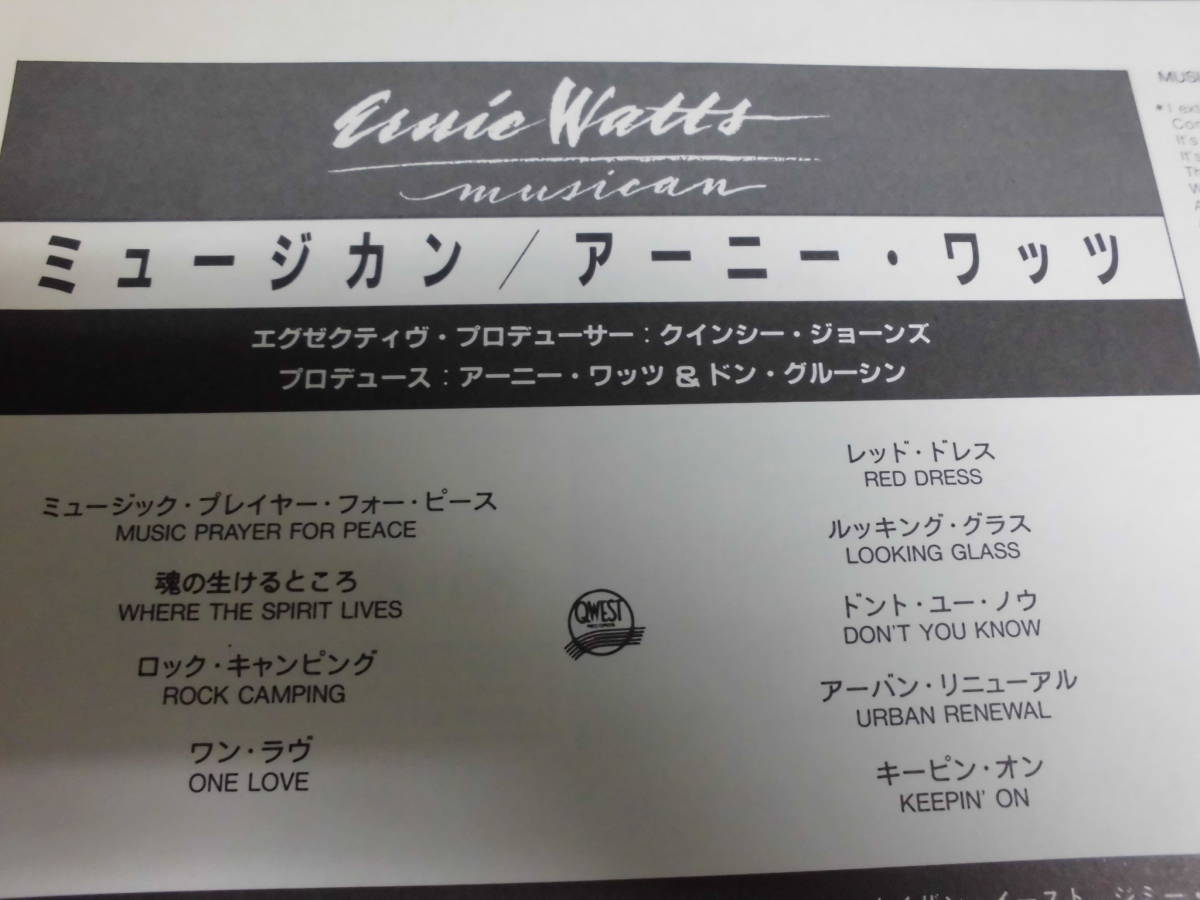 Ernie Watts
musican
ミュージカン/アーニー・ワッツ
エグゼクティヴ・プロデューサー:クインシー・ジョーンズ
プロデュース:アーニー・ワッツ&ドン・グルーシン
ミュージック・プレイヤー・フォー・ピース
MUSIC PRAYER FOR PEACE
魂の生けるところ
WHERE THE SPIRIT LIVES
ロック・キャンピング
ROCK CAMPING
ワン・ラヴ
ONE LOVE
QWEST
RECORDS
レッド・ドレス
RED DRESS
ルッキング・グラス
LOOKING GLASS
ドント・ユー・ノウ
DON'T YOU KNOW
アーバン・リニューアル
URBAN RENEWAL
キーピン・オン
KEEPIN' ON
It's
It's